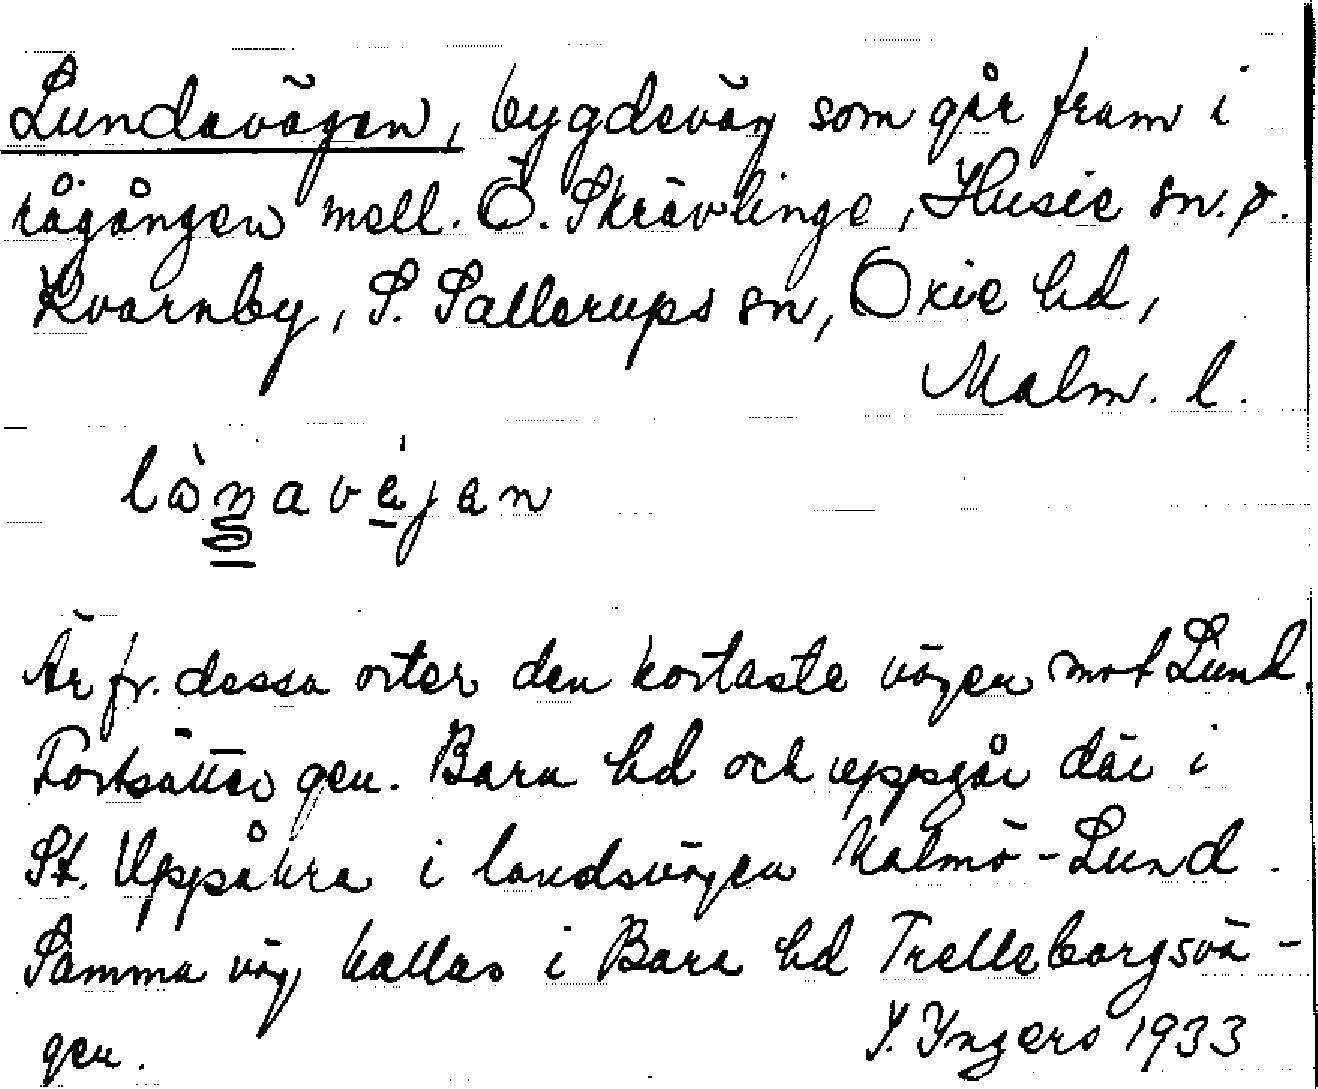 Lundavägen, bygdeväg som går fram i
rågången mell. Ö. Skrävlinge, Husie sn. o.
Kvarnby, S. Sallerups sn, Oxie hd,
Malm. l.
Är fr. dessa orter den kortaste vägen mot Lund.
Fortsätter gen. Bara hd och uppgår där i
St. Uppåkra i landsvägen Malmö-Lund.
Samma väg kallas i Bara hd Trelleborgsvä-
gen.
Y. Yngers 1933